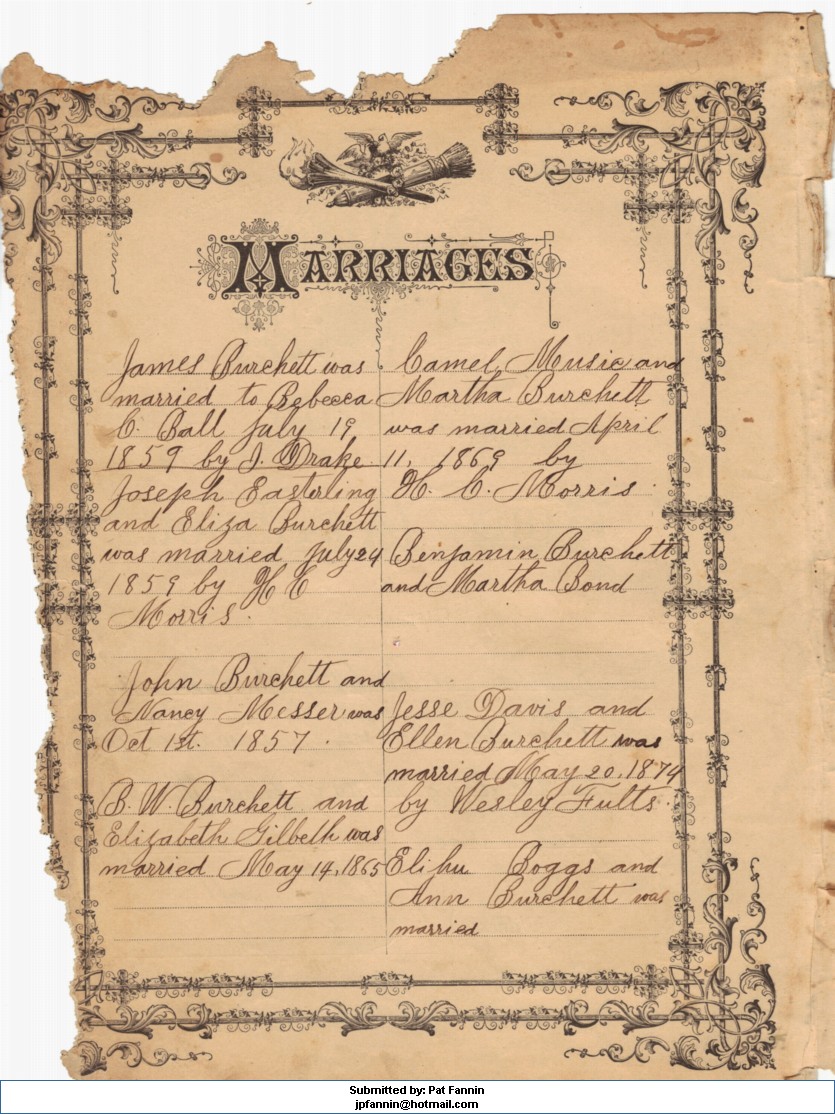 MARRIAGES
James Burchett was
married to Rebecca
C. Ball July 19
1859 by J. Drake
Joseph Easterling
and Eliza Burchett
was married July 24
1859 by H C
Morris.
John Burchett and
Nancy Messer was
Oct 1st. 1857.
B. W. Burchett and
Elizabeth Gilbeth was
married May 14, 1865
Camel, Music and
Martha Burchett
was married April
11, 1869 by
H. C. Morris.
Benjamin Burchett
and Martha Bond
Jesse Davis and
Ellen Burchett was
married May 20, 1874
by Wesley Fults.
Elihu Boggs and
Ann Burchett was
married
Submitted by: Pat Fannin
jpfannin@hotmail.com